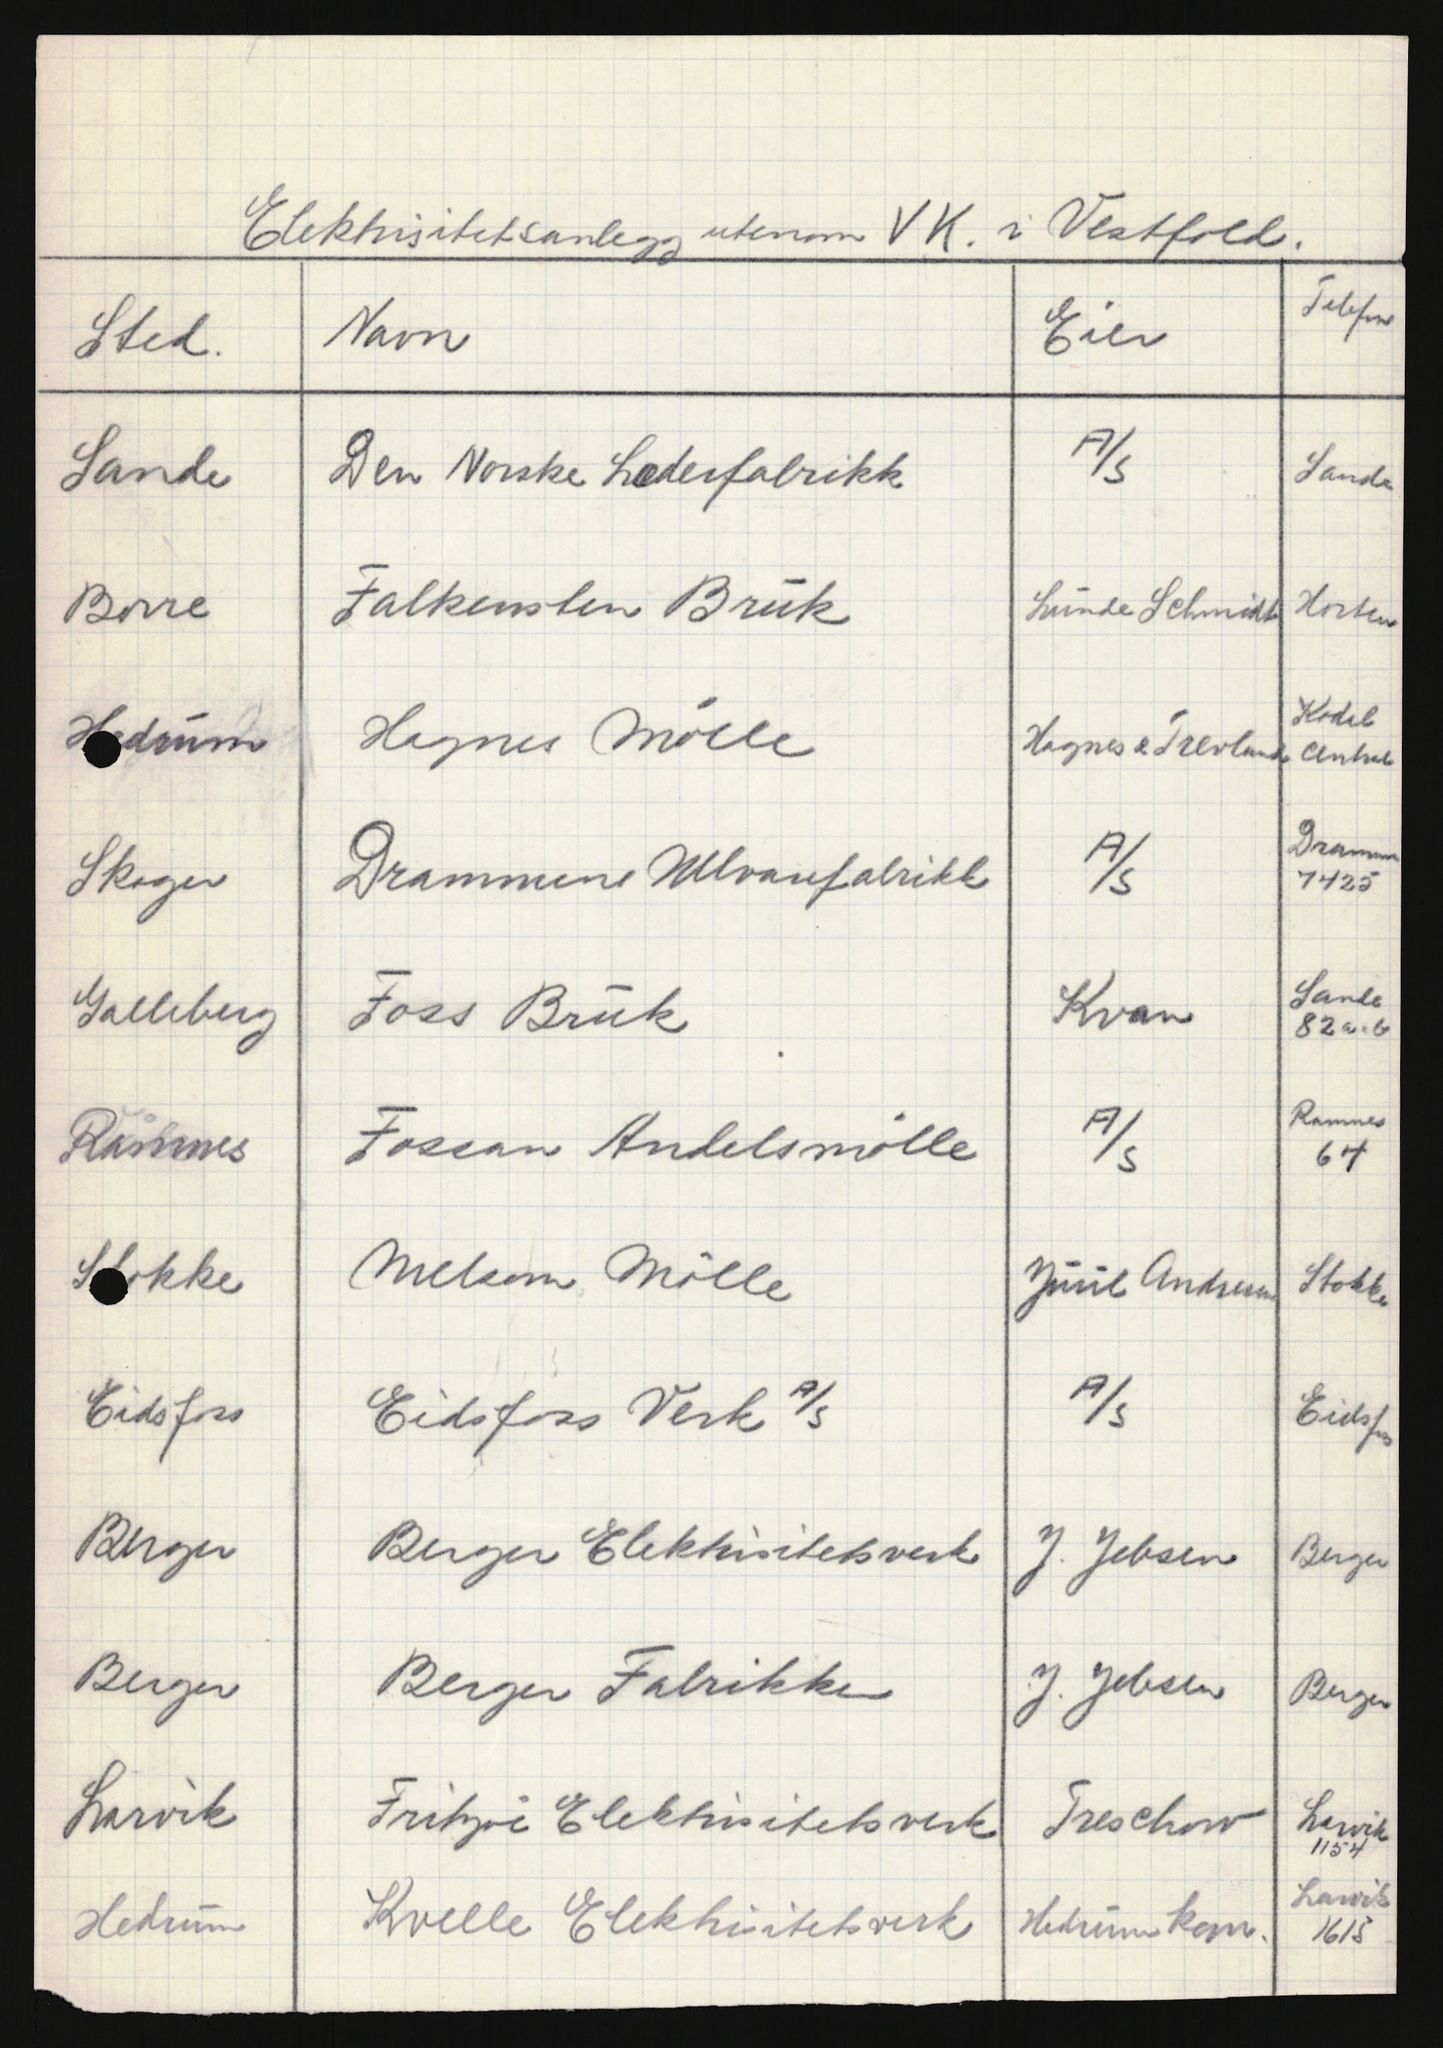 Elektrisitetsanlegg utenom VK. i Vestfold.
Sted. Navn Eier Telefon
Sande Den Norske Lederfabrikk A/S Sande
Borre Falkensten Brŭk Lŭnde Schmidt Horten
Hedrŭm Hagnes Mölle Hagnes & Trevland Kodal
Central
Skoger Drammens Ullvarefabrikk A/S Drammen
7425
Galleberg Foss Brŭk Kvan Sande
82 a-b
Ramnes Fossan Andelsmölle A/S Ramnes
64
Stokke Melsom Mölle Jŭŭl Andresen Stokke
Eidsfoss Eidsfoss Verk A/S A/S Eidsfoss
Berger Berger Elektrisitetsverk J. Jebsen Berger
Berger Berger Fabrikker J. Jebsen Berger
Larvik Fritzöe Elektrisitetsverk Treschow Larvik
1154
Hedrŭm Kvelle Elektrisitetsverk Hedrŭm kom. Larvik
1615